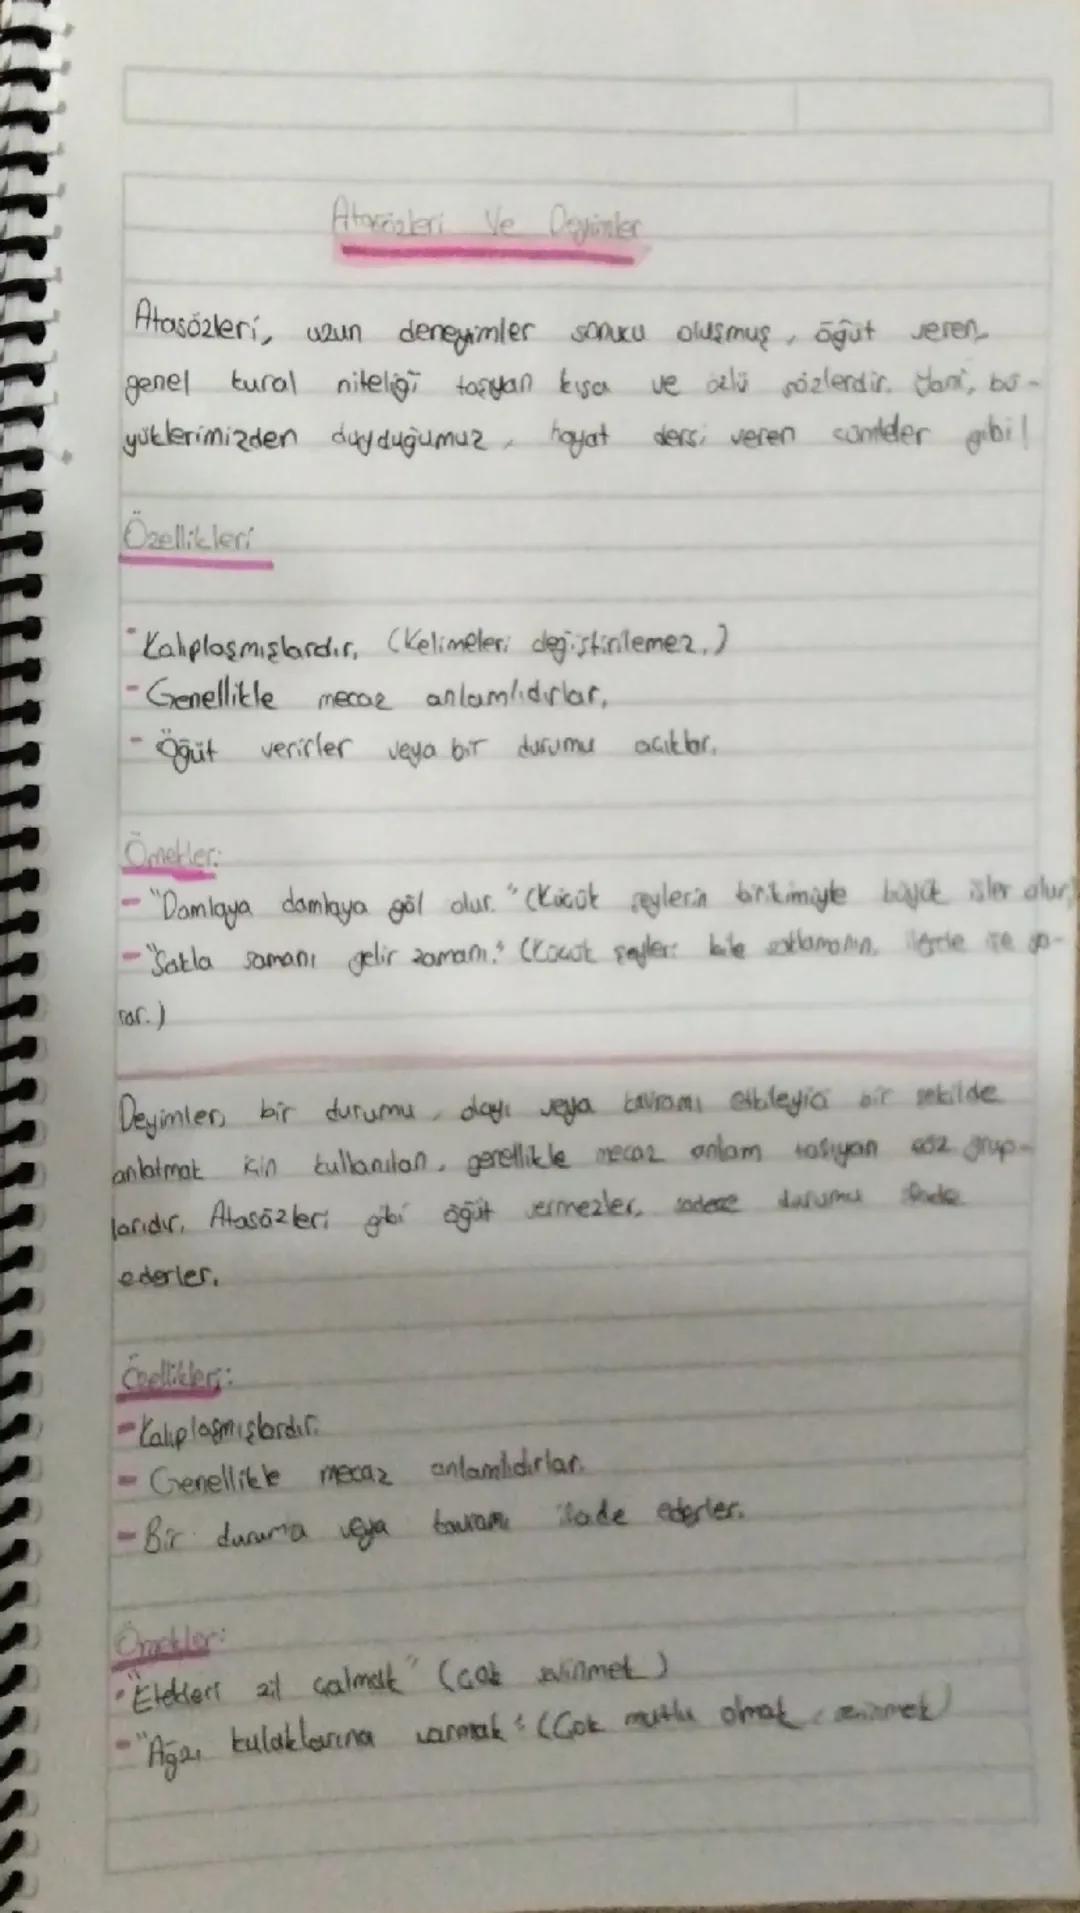 Atasözleri Ve Deyimler
Atasözleri, uzun deneyimler sonucu oluşmuş, öğüt veren,
genel kural niteliği taşıyan kısa ve özlü sözlerdir. Yani, bü-
yüklerimizden duyduğumuz, hayat dersi veren cümleler gibi!
Özellikleri
- Kalıplaşmışlardır, (Kelimeleri değiştirilemez.)
- Genellikle mecaz anlamlıdırlar,
- Öğüt verirler veya bir durumu açıklar.
Örnekler:
- "Damlaya damlaya göl olur." (Küçük şeylerin birikimiyle büyük işler olur.)
- "Sakla samanı gelir zamanı." (Küçük şeyleri bile saklamanın, ilerde işe ya-
rar.)
Deyimler, bir durumu, olayı veya kavramı etkileyici bir şekilde
anlatmak için kullanılan, genellikle mecaz anlam taşıyan söz grup-
larıdır, Atasözleri gibi öğüt vermezler, sadece durumu ifade
ederler.
Özellikleri:
- Kalıplaşmışlardır.
- Genellikle mecaz anlamlıdırlar.
- Bir duruma veya kavramı ifade ederler.
Örnekler:
- "Etekleri zil çalmak" (Çok sevinmek)
- "Ağzı kulaklarına varmak" (Çok mutlu olmak, sevinmek)